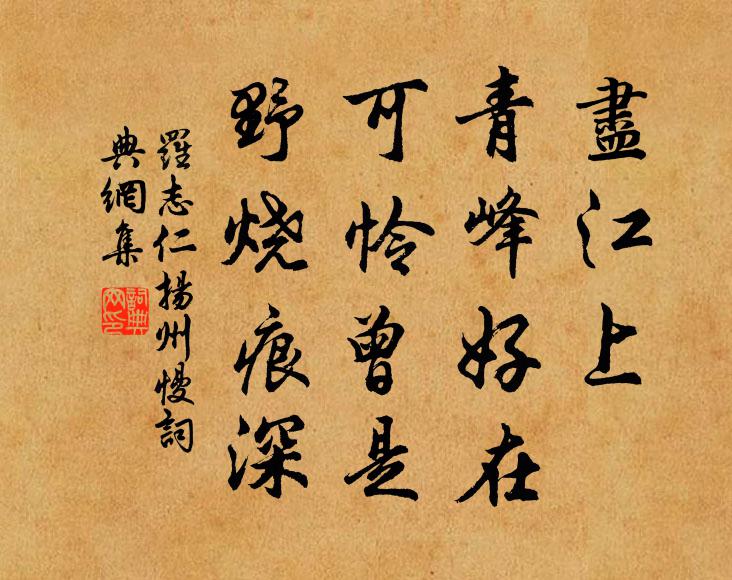 盡江上
青峰好在
可怜曾是
野烧痕深
羅志仁揚州慢詞
典網集
詞典網印